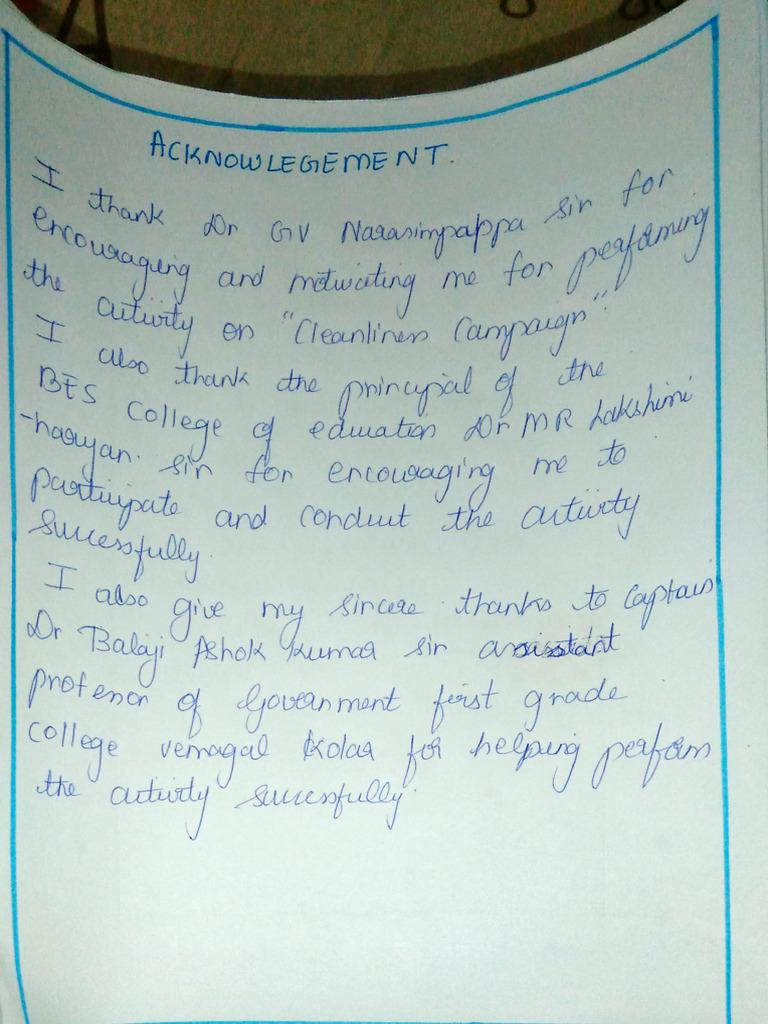 ACKNOWLEGEMENT.
I thank Dr GV Narasimpappa sir for
encouraging and motivating me for performing
the activity on "Cleanliness Campaign".
I also thank the principal of the
BES College of education Dr MR Lakshimi
-narayan. sir for encouraging me to
participate and conduct the activity
successfully.
I also give my sincere thanks to Captain
Dr Balaji Ashok Kumar sir assistant
professor of Government first grade
college vemagal Kolar for helping perform
the activity successfully.